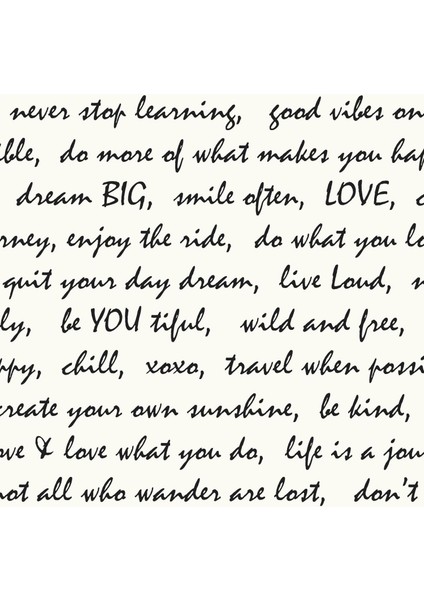 never stop learning, good vibes on
ible, do more of what makes you hap
dream BIG, smile often, LOVE, c
rney, enjoy the ride, do what you lo
quit your day dream, live Loud, n
ly, be YOU tiful, wild and free,
ppy, chill, xoxo, travel when possi
create your own sunshine, be kind,
ove & love what you do, life is a jou
not all who wander are lost, don't